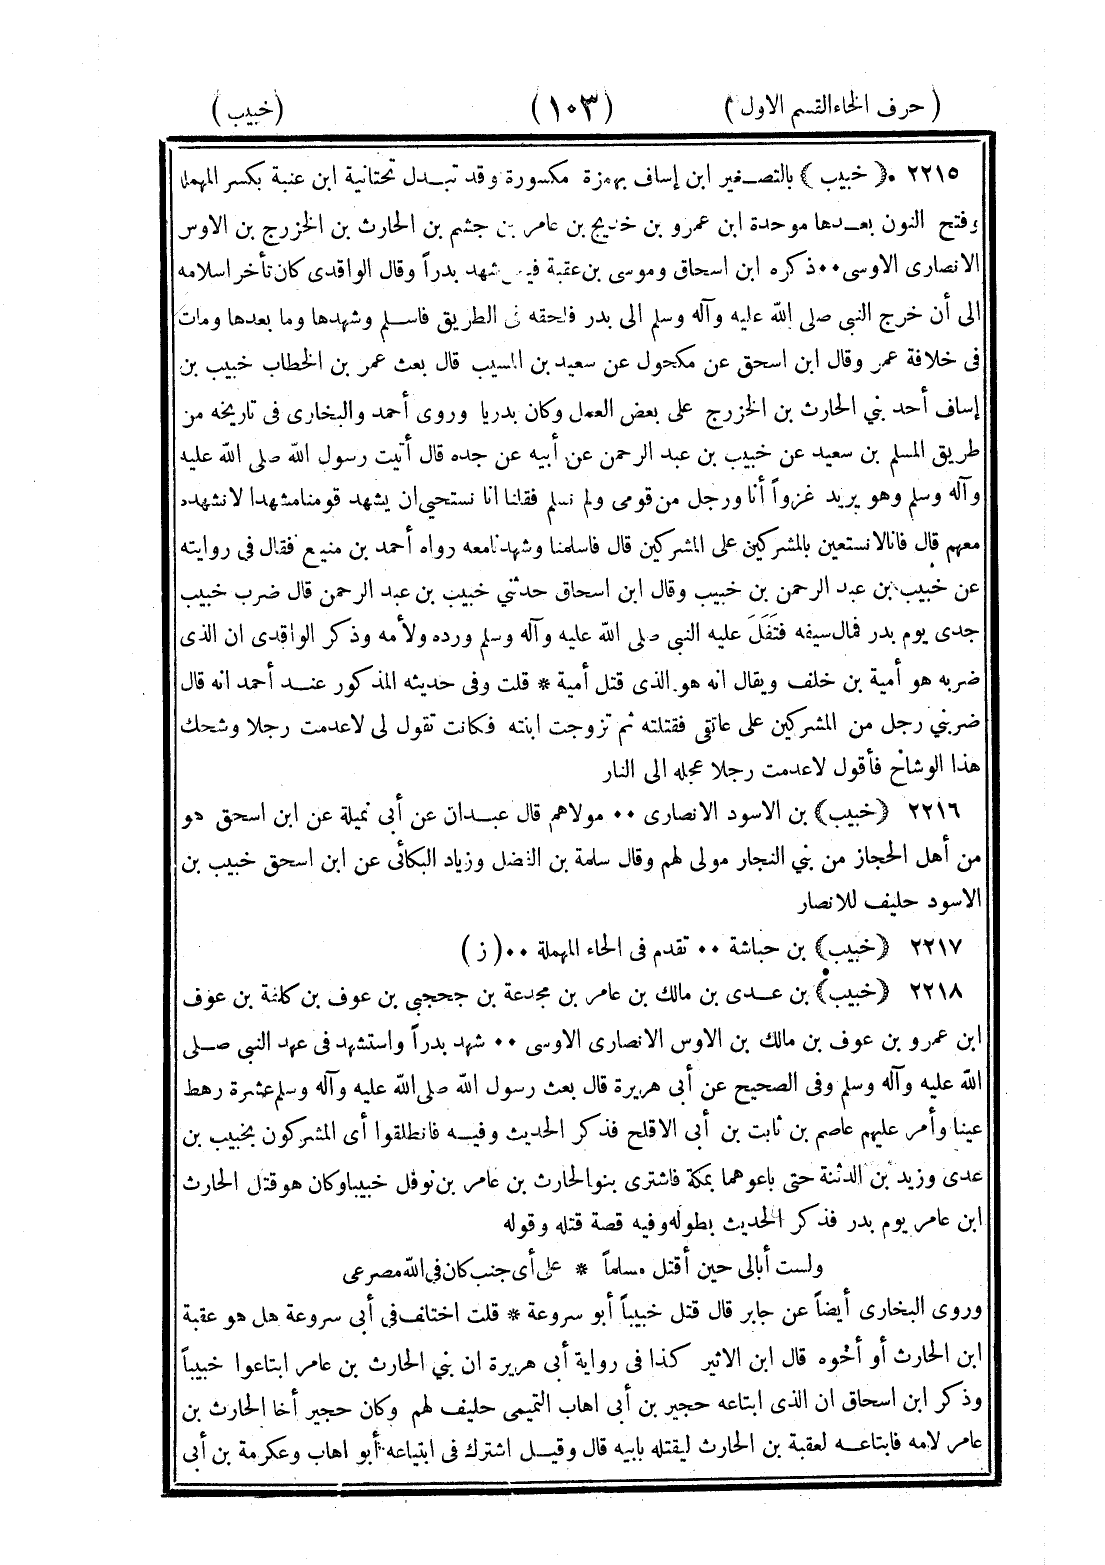 ( حرف الخاء القسم الاول ) (١٠٣) ( خبيب )
٢٢١٥ • ( خبيب ) بالتصغير ابن إساف بهمزة مكسورة وقد تبدل تحتانية ابن عنبة بكسر المهملة
وفتح النون بعدها موحدة ابن عمرو بن خديج بن عامر بن جشم بن الحارث بن الخزرج بن الاوس
الانصارى الاوسى ٠٠ ذكره ابن اسحاق وموسى بن عقبة فيمن شهد بدراً وقال الواقدى كان تأخر اسلامه
الى أن خرج النبى صلى الله عليه وآله وسلم الى بدر فلحقه فى الطريق فاسلم وشهدها وما بعدها ومات
فى خلافة عمر وقال ابن اسحق عن مكحول عن سعيد بن المسيب قال بعث عمر بن الخطاب خبيب بن
إساف أحد بني الحارث بن الخزرج على بعض العمل وكان بدريا وروى أحمد والبخارى فى تاريخه من
طريق المسلم بن سعيد عن خبيب بن عبد الرحمن عن أبيه عن جده قال أتيت رسول الله صلى الله عليه
وآله وسلم وهو يريد غزواً أنا ورجل من قومى ولم نسلم فقلنا انا نستحيى ان يشهد قومنا مشهدا لانشهده
معهم قال فانا لانستعين بالمشركين على المشركين قال فاسلمنا وشهدنا معه رواه أحمد بن منيع فقال فى روايته
عن خبيب بن عبد الرحمن بن خبيب وقال ابن اسحاق حدثني خبيب بن عبد الرحمن قال ضرب خبيب
جدى يوم بدر فمال سيفه فتَفَلَ عليه النبى صلى الله عليه وآله وسلم ورده ولأمه وذكر الواقدى ان الذى
ضربه هو أمية بن خلف ويقال انه هو الذى قتل أمية * قلت وفى حديثه المذكور عند أحمد انه قال
ضربني رجل من المشركين على عاتقى فقتلته ثم تزوجت ابنته فكانت تقول لى لاعدمت رجلا وشحك
هذا الوشاح فأقول لاعدمت رجلا عجله الى النار
٢٢١٦ ( خبيب ) بن الاسود الانصارى ٠٠ مولاهم قال عبدان عن أبى نميلة عن ابن اسحق هو
من أهل الحجاز من بني النجار مولى لهم وقال سلمة بن الفضل وزياد البكائى عن ابن اسحق خبيب بن
الاسود حليف للانصار
٢٢١٧ ( خبيب ) بن حباشة ٠٠ تقدم فى الحاء المهملة ٠٠ ( ز )
٢٢١٨ ( خبيب ) بن عدى بن مالك بن عامر بن مجدعة بن جحجبي بن عوف بن كلفة بن عوف
ابن عمرو بن عوف بن مالك بن الاوس الانصارى الاوسى ٠٠ شهد بدراً واستشهد فى عهد النبى صلى
الله عليه وآله وسلم وفى الصحيح عن أبى هريرة قال بعث رسول الله صلى الله عليه وآله وسلم عشرة رهط
عينا وأمر عليهم عاصم بن ثابت بن أبى الاقلح فذكر الحديث وفيه فانطلقوا أى المشركون بخبيب بن
عدى وزيد بن الدثنة حتى باعوهما بمكة فاشترى بنو الحارث بن عامر بن نوفل خبيبا وكان هو قتل الحارث
ابن عامر يوم بدر فذكر الحديث بطوله وفيه قصة قتله وقوله
ولست أبالى حين أقتل مسلماً * على أى جنب كان فى الله مصرعى
وروى البخارى أيضاً عن جابر قال قتل خبيباً أبو سروعة * قلت اختلف فى أبى سروعة هل هو عقبة
ابن الحارث أو أخوه قال ابن الاثير كذا فى رواية أبى هريرة ان بني الحارث بن عامر ابتاعوا خبيباً
وذكر ابن اسحاق ان الذى ابتاعه حجير بن أبى اهاب التميمى حليف لهم وكان حجير أخا الحارث بن
عامر لامه فابتاعه لعقبة بن الحارث ليقتله بابيه قال وقيل اشترك فى ابتياعه أبو اهاب وعكرمة بن أبى